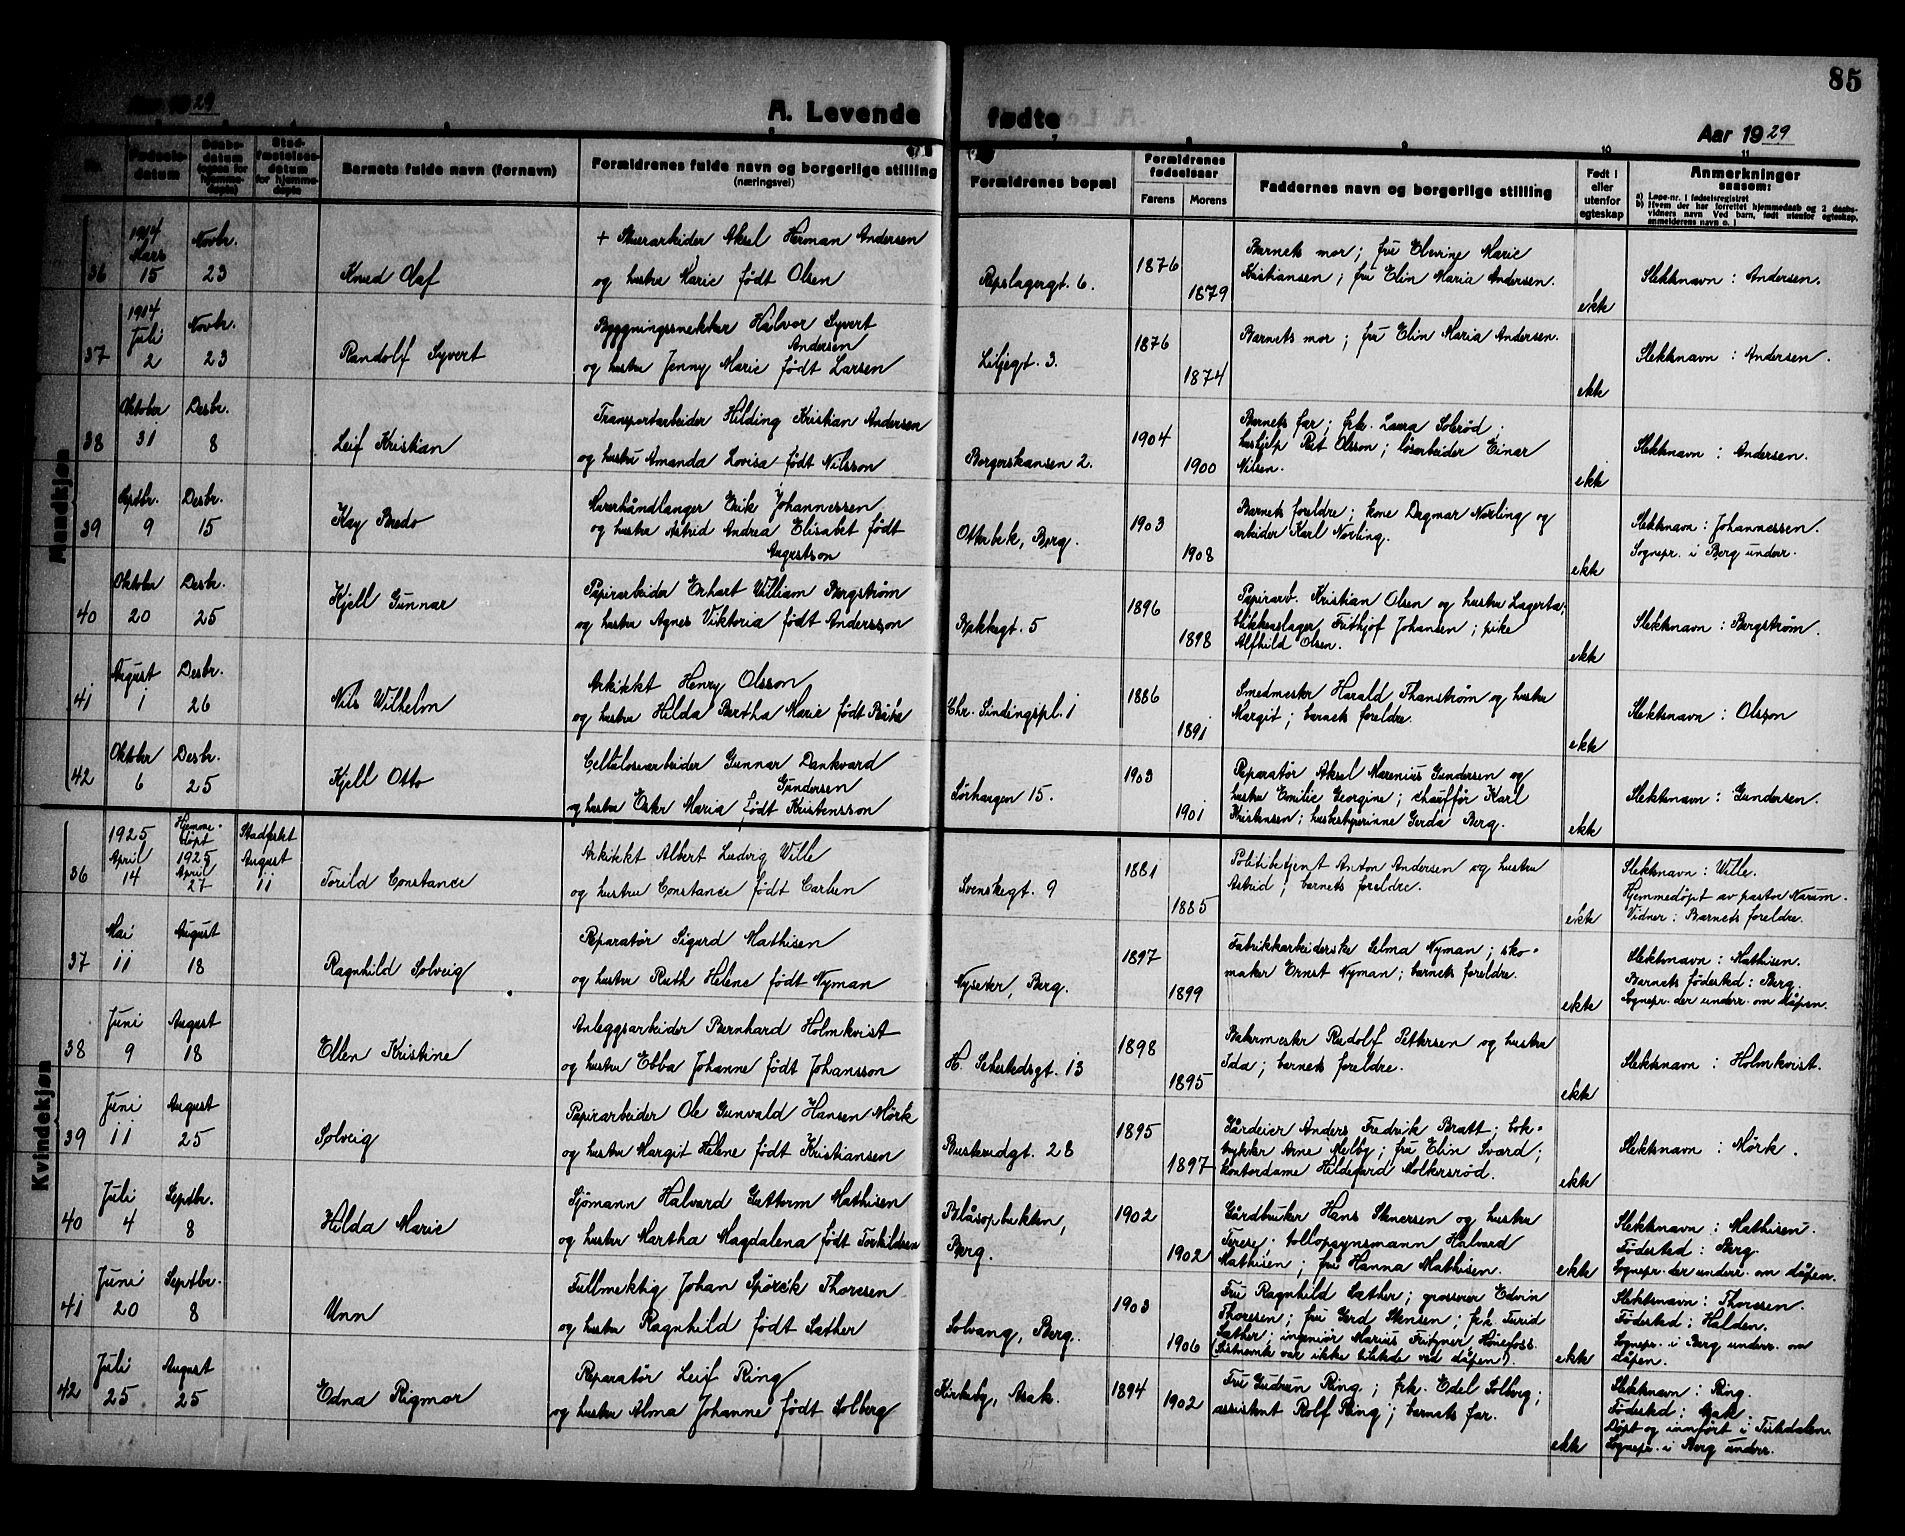 85
Aar 1929
A. Levende fødte
Aar 1929
Fødsels-datum
Daabs-datum (ogsaa for hjemme-døpte)
Stad-fæstelses-datum for hjemme-døpte
Barnets fulde navn (fornavn)
Forældrenes fulde navn og borgerlige stilling (næringsvei)
Forældrenes bopæl
Forældrenes fødselsaar
Farens
Morens
Faddernes navn og borgerlige stilling
Født i eller utenfor egteskap
Anmerkninger saasom:
a) Løpe-nr. i fødselsregistret
b) Hvem der har forrettet hjemmedaab og 2 daabs-
vidners navn Ved barn, født utenfor egteskap,
anmelderens navn o. l
Mandkjøn
36
1914 Mars 15
Novbr. 23
Knud Olaf
+ Stuerarbeider Aksel Herman Andersen
og hustru Marie født Olsen
Repslagergt. 6.
1876
1879
Barnets mor; fru Elevine Marie
Kristiansen; fru Elin Maria Andersen.
ekte
Slektsnavn: Andersen.
37
1914 Juli 2
Novbr. 23
Randolf Syvert
Byggningssnekker Halvor Syvert
Andersen
og hustru Jenny Marie født Larsen
Liljegt. 3.
1876
1874
Barnets mor; fru Elin Maria Andersen.
ekte
Slektsnavn: Andersen.
38
Oktober 31
Desbr. 8
Leif Kristian
Transportarbeider Hilding Kristian Andersen
og hustru Amanda Lovisa født Nilsson
Borgerskansen 2.
1904
1900
Barnets far; frk. Laura Solrød;
hushjelp Olsson; løsarbeider Einar
Nilsen.
ekte
Slektsnavn: Andersen.
39
Septbr. 9
Desbr. 15
Kay Bredo
Murerhåndlanger Erik Johannessen
og hustru Astrid Andrea Elisabet født
Augustson
Otterbek, Berg.
1903
1908
Barnets foreldre; kone Dagmar Nørling og
arbeider Karl Nørling.
ekte
Slektsnavn: Johannessen.
Sognepr. i Berg underr.
40
Oktober 20
Desbr. 25
Kjell Gunnar
Papirarbeider Erhart William Bergstrøm
og hustru Agnes Viktoria født Andersson
Bekkegt. 5
1896
1898
Papirarb. Kristian Olsen og hustru Lagerta;
blikkenslager Frithjof Johansen; pike
Alfhild Olsen.
ekte
Slektsnavn: Bergstrøm.
41
August 1
Desbr. 26
Nils Wilhelm
Arkitekt Henry Olsson
og hustru Hilda Bertha Marie født
Chr. Sindingspl. 1
1886
1891
Smedmester Harald Thanstrøm og hustru
Margit; barnets foreldre.
ekte
Slektsnavn: Olsson
42
Oktober 6
Desbr. 25
Kjell Otto
Cellulosearbeider Gunnar Dankvard
Gundersen
og hustru Ester Maria født Kristensson
Sørhaugen 15.
1903
1901
Reparatør Aksel Marenius Gundersen og
hustru Emilie Georgine; chauffør Karl
Kristensen; husbestyrerinne Gerda Berg.
ekte
Slektsnavn: Gundersen.
Kvindekjøn
36
1925 April 14
Hjemme-døpt 1925 April 27
Stadfestet August 11
Torild Constance
Arkitekt Albert Ludvig Wille
og hustru Constance født Carlsen
Svenskegt. 9
1881
1885
Politibetjent Anton Andersen og hustru
Astrid; barnets foreldre.
ekte
Slektsnavn: Wille.
Hjemmedøpt av pastor Narum.
Vidner: Barnets foreldre.
37
Mai 11
August 18
Ragnhild Solveig
Reparatør Sigurd Mathisen
og hustru Ruth Helene født Nyman
Nyseter, Berg.
1897
1899
Fabrikkarbeiderske Selma Nyman; sko-
maker Ernst Nyman; barnets foreldre.
ekte
Slektsnavn: Mathisen.
Barnets fødested: Berg.
Sognepr. der underr. om dåpen.
38
Juni 9
August 18
Ellen Kristine
Anleggsarbeider Bernhard Holmkvist
og hustru Ebba Johanne født Johansson
H. Sehestedsgt. 13
1898
1895
Bakermester Rudolf Pettersen og hustru
Ida; barnets foreldre.
ekte
Slektsnavn: Holmkvist.
39
Juni 11
August 25
Solveig
Papirarbeider Ole Gunvald Hansen Mörk
og hustru Margit Helene født Kristiansen
Busterudgt. 28
1895
1897
Gårdeier Anders Fredrik Bratt; bok-
trykker Arne Melby; fru Elin Svärd;
kontordame Hildegard Molkersrød.
ekte
Slektsnavn: Mörk.
40
Juli 4
Septbr. 8
Hilda Marie
Sjømann Halvard Guttorm Mathisen
og hustru Martha Magdalena født Torkildsen
Blåsopbukten,
Berg.
1902
1902
Gårdbruker Hans Stenersen og hustru
Terese; tollopsynsmann Halvard
Mathisen; fru Hanna Mathisen.
ekte
Slektsnavn: Mathisen.
Fødested: Berg.
Sognepr. der underr. om dåpen.
41
Juni 20
Septbr. 8
Unn
Fullmektig Johan Spørck Thoresen
og hustru Ragnhild født Sæther
Solvang, Berg.
1903
1906
Fru Ragnhild Sæther; grosserer Edvin
Thoresen; fru Gerd Stensen; frk. Turid
Sæther; ingeniør Marius Fritzner Hönefoss.
(Sistnevnte var ikke tilstede ved dåpen).
ekte
Slektsnavn: Thoresen.
Födested: Halden.
Sognepr. i Berg underr. om
dåpen.
42
Juli 25
August 25
Edna Rigmor
Reparatør Leif Ring
og hustru Alma Johanne født Solberg
Kirkeby, Asak.
1894
1902
Fru Gudrun Ring; frk. Edel Solberg;
assistent Rolf Ring; barnets far.
ekte
Slektsnavn: Ring.
Födested: Asak.
Døpt og innført i Tistedalen.
Sognepr. i Berg underr.